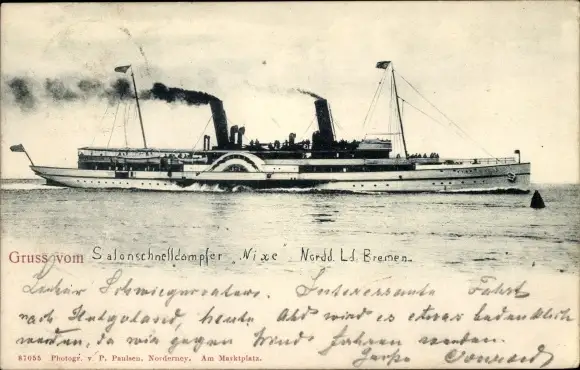 Gruss vom Salonschnelldampfer „Nixe“ Nordd. Ld. Bremen.
Lieber Schwiegervater. Interessante Fahrt
nach Helgoland, heute. Ald wird es etwas bedenklich
werden, da wir gegen Wind fahren werden.
87055 Photogr. v. P. Paulsen, Norderney. Am Marktplatz.